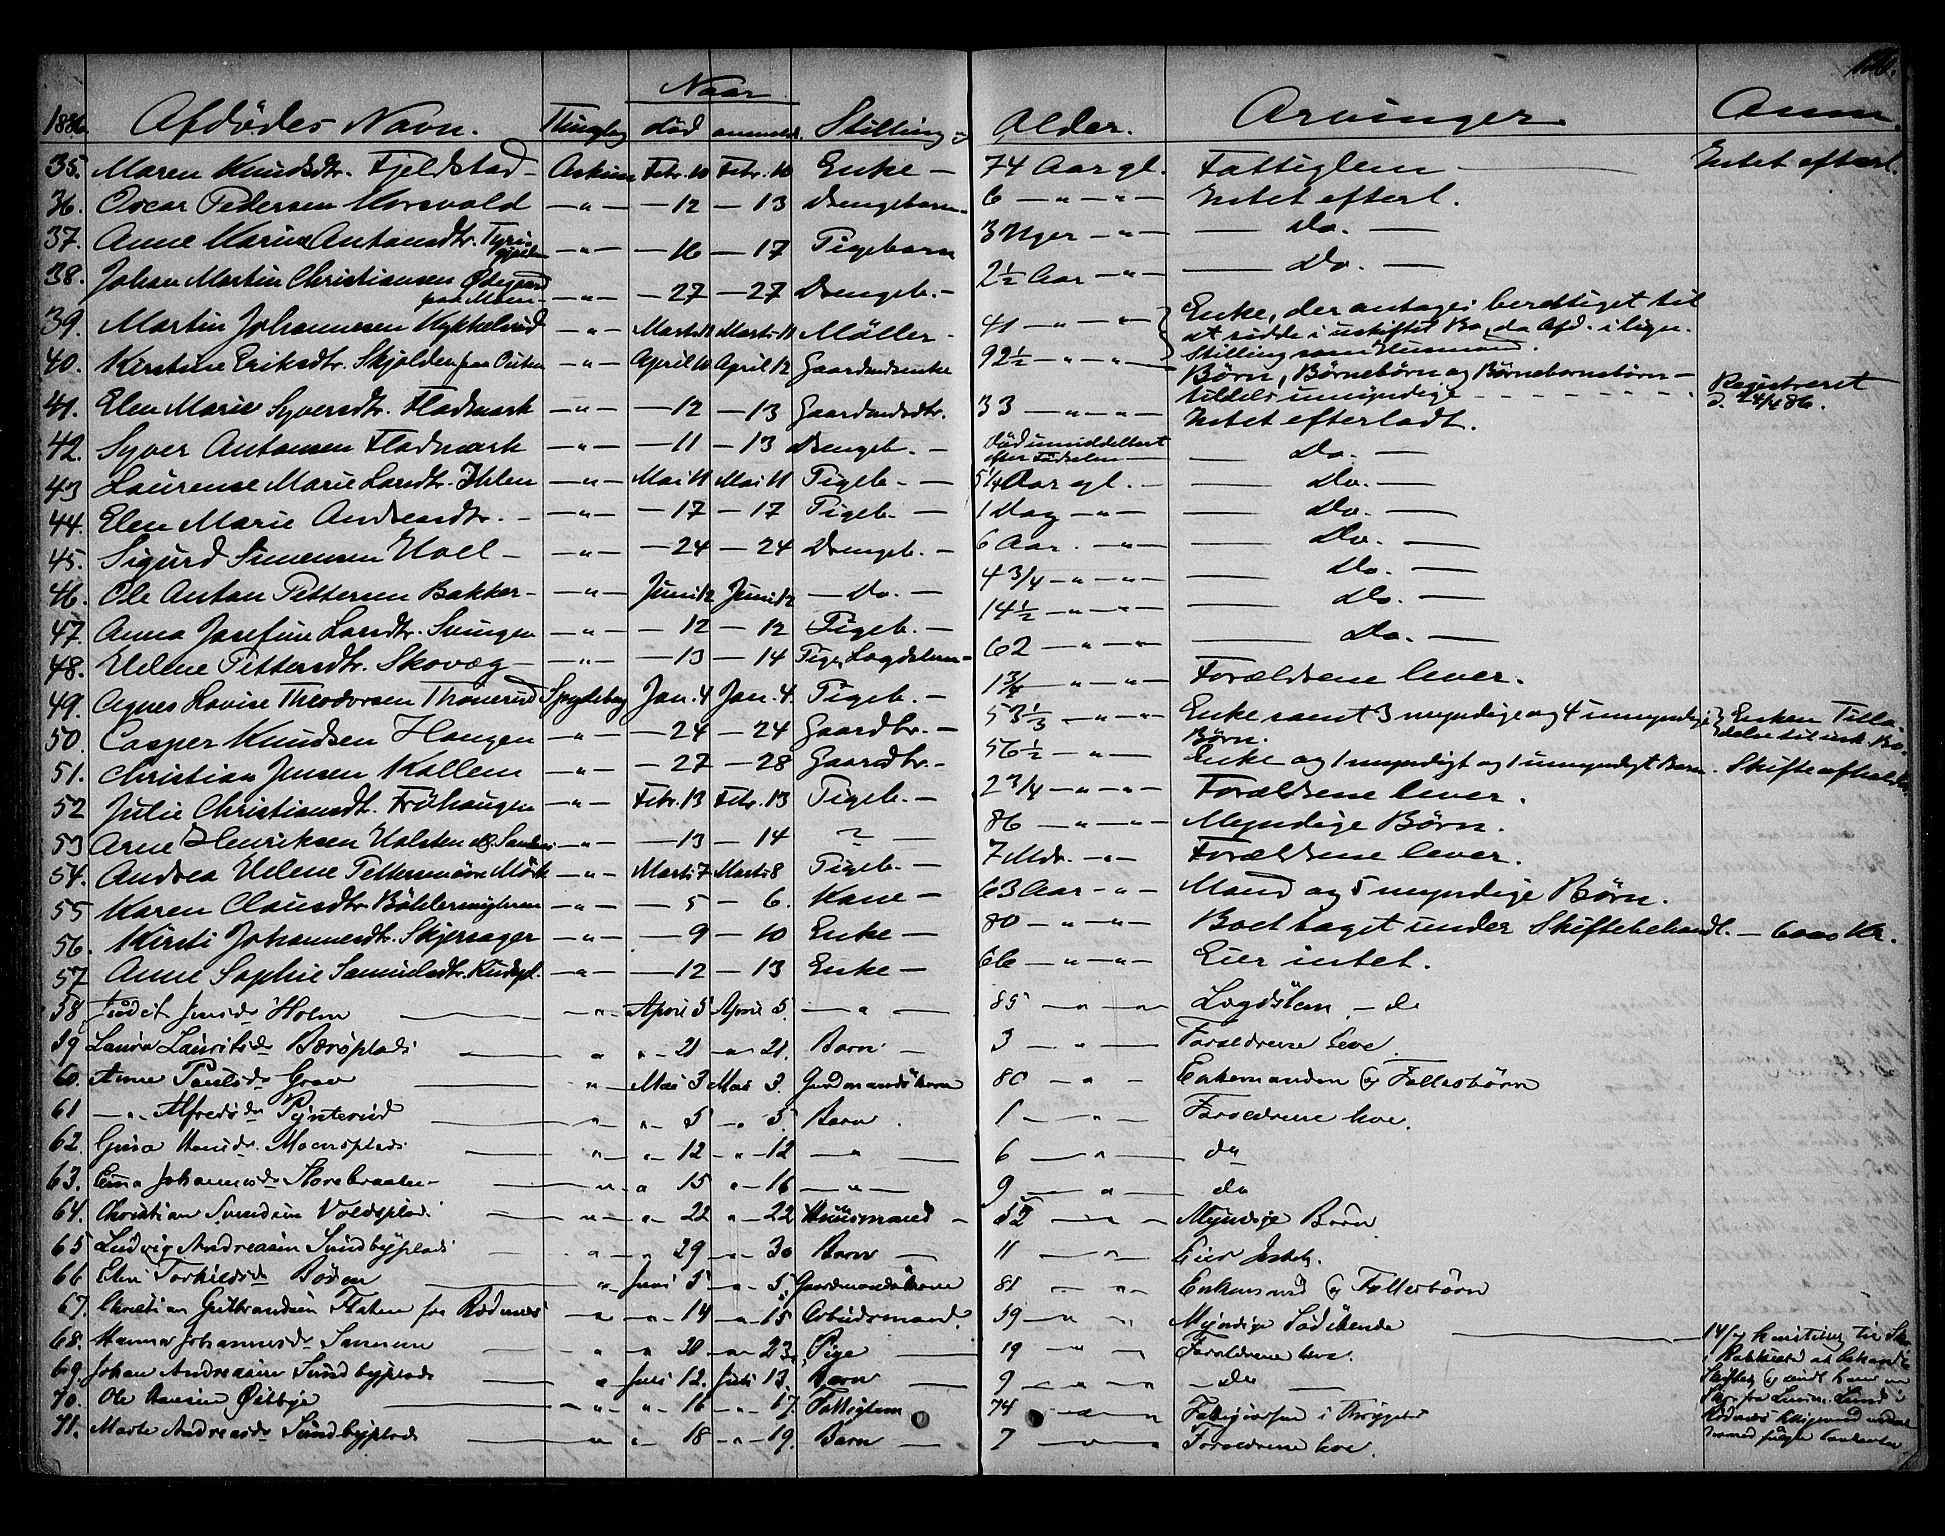 120.
Naar
1886. Afdödes Navn. Thinglag död anmeldt. Stilling Alder. Arvinger Anm.
35. Maren Knudsdtr. Fjeldstad - Askim Febr. 10 Febr. 10 Enke - 74 Aar gl. Fattiglem Intet efterl.
36. Oscar Pedersen Korsvold - " - - 12 - 13 Drengebarn. 6 - " - " - Intet efterl.
37. Anne Karine Antonsdtr. - " - - 16 - 17 Pigebarn 3 Uger - " - Do.
38. Johan Martin Christiansen Ødegaard paa Moen - - " - - 27 - 27 Drengeb. - 2½ Aar - " - Do.
39. Martin Johannesen Kykkelsrud - " - Marts 11 Marts 11 Möller - 41 - " - " - Enke, der antages berettiget til
at sidde i uskiftet Bo, da Afd. i lign.
Stilling som Husmand.
40. Kirstine Eriksdtr. Skjolden - " - April 10 April 12 Gaardmdsenke 92½ - " - " - Börn, Börnebörn og Börnebörnsbörn -
tildels umyndige - - - Registreret
d. 24/4 86.
41. Elen Marie Syversdtr. Fladmark - " - - 12 - 13 Gaardmdsdtr. 33 - " - " - Intet efterladt.
42. Syver Antonsen Fladmark - " - - 11 - 13 Drengeb. - död umiddelbart
efter Födselen - Do.
43 Laurense Marie Larsdtr. Ihlen - " - Mai 11 Mai 11 Pigeb. - 5¼ Aar gl. - Do.
44. Elen Marie Andreasdtr. - - " - - 17 - 17 Pigeb. - 1 Dag - " - Do.
45. Sigurd Simensen Hoel - - " - - 24 - 24 Drengeb. - 6 Aar. - " - Do.
46. Ole Anton Pettersen Bakker - - " - Juni 12 Juni 12 - Do. - 4¾ - " - " - Do.
47. Anna Josefine Larsdtr. Svingen - " - - 12 - 12 Pigeb. - 14½ - " - " - Do.
48. Helene Pettersdtr. Skovæg - - " - - 13 - 14 Pige, Lægdslem - 62 - " - " - Do.
49. Agnes Lovise Theodorsen Thonerud Spydeberg Jan. 4 Jan. 4. Pigeb. - 1¾ - " - " - Forældrene lever.
50. Casper Knudsen Haugen - " - - 24 - 24 Gaardbr. - 53⅓ - " - " - Enke samt 3 myndige og 4 umyndige
Börn. Enken Tilla-
delse til usk. Bo.
51. Christian Jensen Kollem - " - - 27 - 28 Gaardbr. - 56½ - " - Enke og 1 myndigt og 1 umyndigt Barn. Skifte afholdt.
52 Julie Christiansdtr. Fröhaugen - " - Febr. 13 Febr. 13 Pigeb. - 2¾ - " - " - Forældrene lever.
53 Arne Henriksen Holsten - " - - 13 - 14 ? - 86 - " - " - Myndige Börn.
54. Andrea Helene Mörk - " - Marts 7 Marts 8 Pigeb. - 7 Mdr. - " - Forældrene lever.
55 Karen Clausdtr. - " - - 5 - 6. Kone - 63 Aar - " - Mand og 5 myndige Börn.
56. Kirsti Johannesdtr. Skjersager - " - - 9 - 10 Enke - 80 - " - " - Boet taget under Skiftebehandl. - 6000 Kr.
57 Anne Sophie Samuelsdtr. - " - - 12 - 13 Enke - 66 - " - " - Eier intet.
58. Judit Jensdr Holm " April 5 April 5. - " - 85 - " - Lægdslem - do
59 Laura Lauritsdr Bersplads " " - 21 - " 21. Barn - 3 - " - Forældrene leve.
60. Anne Paulsdr Grav " Mai 3 Mai 3. Gaardmandskone 80 - " - Enkemanden og Fællesbörn
61 - " - Alfredsdr Pynterud " " 5 - " 5. Barn. 1 - " - Forældrene leve.
62. Gina Hansdr. Moensplads " " 12 - " - 12 - " - 6 - " - do
63. Emma Johannesdr Storebraaten - " " 15 " - 16 - " - 9 - " - do
64. Christian Svendsen Voldsplads " " 22 " - 22 Huusmand - 52 - " - Myndige Börn
65 Ludvig Andreasen Sundbyplads " " 29 - " - 30 Barn - 11 - " - Eier Intet.
66 Elen Torkildsdr Boden " Juni 5 - " - 5. Gaardmandskone 81 - " - Enkemand og Fællesbörn
67. Christian Gulbrandsen Flaten fra Rödnes " " 14 - " 15 Arbeidsmand. 59 - " " Myndige Södskende
68. Hanna Johannesdr " " 20 - " - 23. Pige 19 - " " Forældrene leve.
69. Johan Andreasen Sundbyplads " Juli 12. Juli 13. Barn - 9 - " - " - do
70. Ole Hansen Østbye " " " 16 - " - 17. Fattiglem 74 - " - Fattigvæsen i
71. Marte Andreasdr Sundbyplads " " 18 - " - 19. Barn - 7 - " - Forældrene leve.